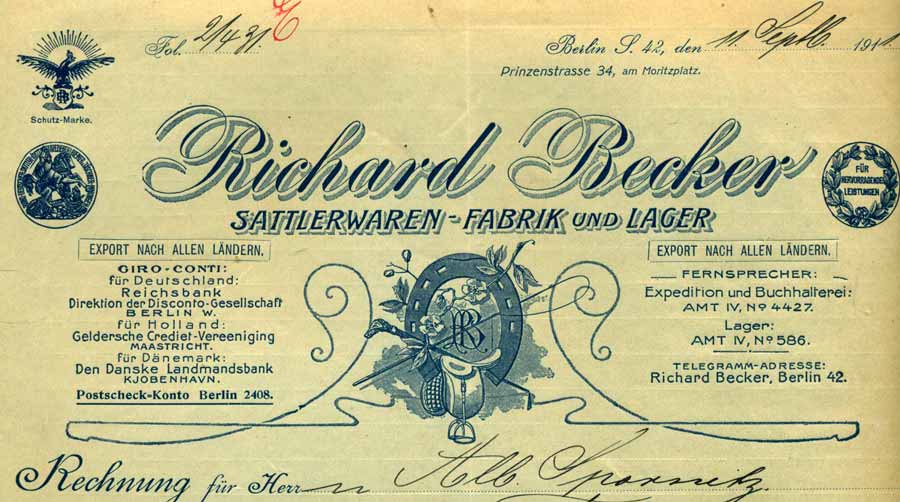 Fol.
Berlin S. 42, den 11. Septb. 1911.
Prinzenstrasse 34, am Moritzplatz.
Schutz-Marke.
Richard Becker
SATTLERWAREN-FABRIK UND LAGER
FÜR
HERVORRAGENDE
LEISTUNGEN
EXPORT NACH ALLEN LÄNDERN.
GIRO-CONTI:
für Deutschland:
Reichsbank
Direktion der Disconto-Gesellschaft
BERLIN W.
für Holland:
Geldersche Crediet-Vereeniging
MAASTRICHT.
für Dänemark:
Den Danske Landmandsbank
KJOBENHAVN.
Postscheck-Konto Berlin 2408.
RB
EXPORT NACH ALLEN LÄNDERN.
FERNSPRECHER:
Expedition und Buchhalterei:
AMT IV, No 4427.
Lager:
AMT IV, No 586.
TELEGRAMM-ADRESSE:
Richard Becker, Berlin 42.
Rechnung für Herrn Alb.